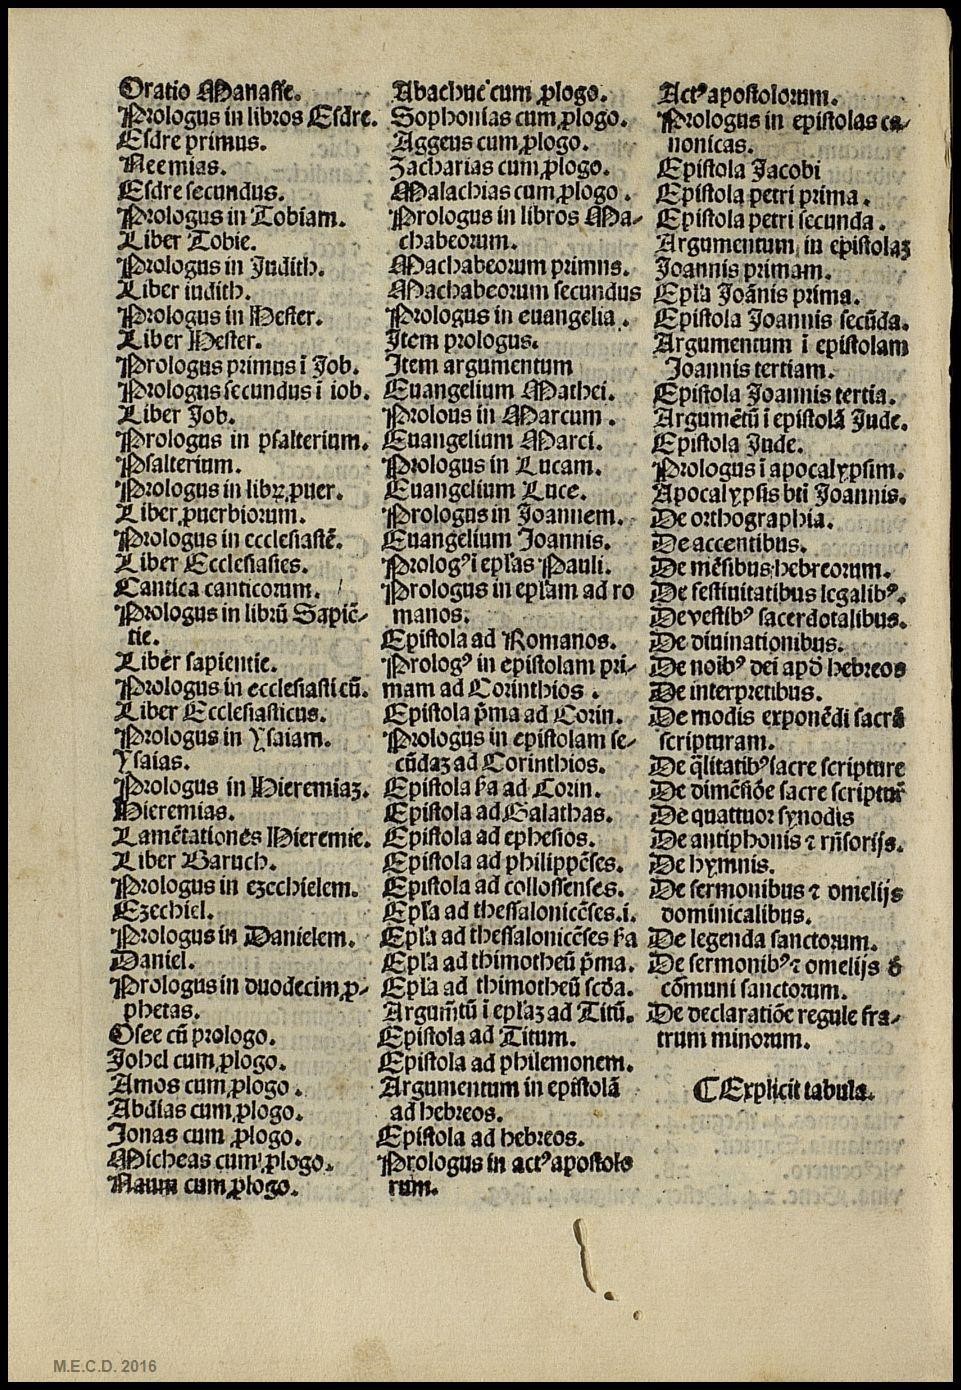 Oratio Manasse.
Prologus in libros Esdre.
Esdre primus.
Neemias.
Esdre secundus.
Prologus in Tobiam.
Liber Tobie.
Prologus in Judith.
Liber iudith.
Prologus in Hester.
Liber Hester.
Prologus primus ī Job.
Prologus secundus ī iob.
Liber Job.
Prologus in psalterium.
Psalterium.
Prologus in libꝝ ꝓuer.
Liber ꝓuerbiorum.
Prologus in ecclesiastē.
Liber Ecclesiastes.
Cantica canticorum.
Prologus in librū Sapiē-
tie.
Liber sapientie.
Prologus in ecclesiasticū.
Liber Ecclesiasticus.
Prologus in Ysaiam.
Ysaias.
Prologus in Hieremiaz.
Hieremias.
Lamētationes Hieremie.
Liber Baruch.
Prologus in ezechielem.
Ezechiel.
Prologus in Danielem.
Daniel.
Prologus in duodecim ꝓ-
phetas.
Osee cū prologo.
Johel cum ꝓlogo.
Amos cum ꝓlogo.
Abdias cum ꝓlogo.
Jonas cum ꝓlogo.
Micheas cum ꝓlogo.
Naum cum ꝓlogo.
Abachuc cum ꝓlogo.
Sophonias cum ꝓlogo.
Aggeus cum ꝓlogo.
Zacharias cum ꝓlogo.
Malachias cum ꝓlogo.
Prologus in libros Ma-
chabeorum.
Machabeorum primus.
Machabeorum secundus
Prologus in euangelia.
Item prologus.
Item argumentum
Euangelium Mathei.
Prolous in Marcum.
Euangelium Marci.
Prologus in Lucam.
Euangelium Luce.
Prologus in Joannem.
Euangelium Joannis.
Prologꝰ ī ep̄las Pauli.
Prologus in ep̄lam ad ro
manos.
Epistola ad Romanos.
Prologꝰ in epistolam pri-
mam ad Corinthios.
Epistola p̄ma ad Corin.
Prologus in epistolam se-
cūdaz ad Corinthios.
Epistola ẜa ad Corin.
Epistola ad Galathas.
Epistola ad ephesios.
Epistola ad philippēses.
Epistola ad collossenses.
Ep̄la ad thessalonicēses.i.
Ep̄la ad thessalonicēses ẜa
Ep̄la ad thimotheū p̄ma.
Ep̄la ad thimotheū scd̄a.
Argum̄tū ī ep̄laz ad Titū.
Epistola ad Titum.
Epistola ad philemonem.
Argumentum in epistolā
ad hebreos.
Epistola ad hebreos.
Prologus in actꝰ apostolo
rum.
Actꝰ apostolorum.
Prologus in epistolas ca-
nonicas.
Epistola Jacobi
Epistola petri prima.
Epistola petri secunda.
Argumentum in epistolaz
Joannis primam.
Ep̄la Joānis prima.
Epistola Joannis secūda.
Argumentum ī epistolam
Joannis tertiam.
Epistola Joannis tertia.
Argumētū ī epistolā Jude.
Epistola Jude.
Prologus ī apocalypsim.
Apocalypsis bt̄i Joannis.
De orthographia.
De accentibus.
De mēsibus hebreorum.
De festiuitatibus legalibꝰ.
De vestibꝰ sacerdotalibus.
De diuinationibus.
De noībꝰ dei apd̄ hebreos
De interpretibus.
De modis exponēdi sacrā
scripturam.
De q̄litatibꝰ sacre scripture
De dimēsiōe sacre scripture
De quattuor synodis
De antiphonis ⁊ rn̄sorijs.
De hymnis.
De sermonibus ⁊ omelijs
dominicalibus.
De legenda sanctorum.
De sermonibꝰ ⁊ omelijs d̄
cōmuni sanctorum.
De declaratiōe regule fra-
trum minorum.
⸿ Explicit tabula.
M.E.C.D. 2016